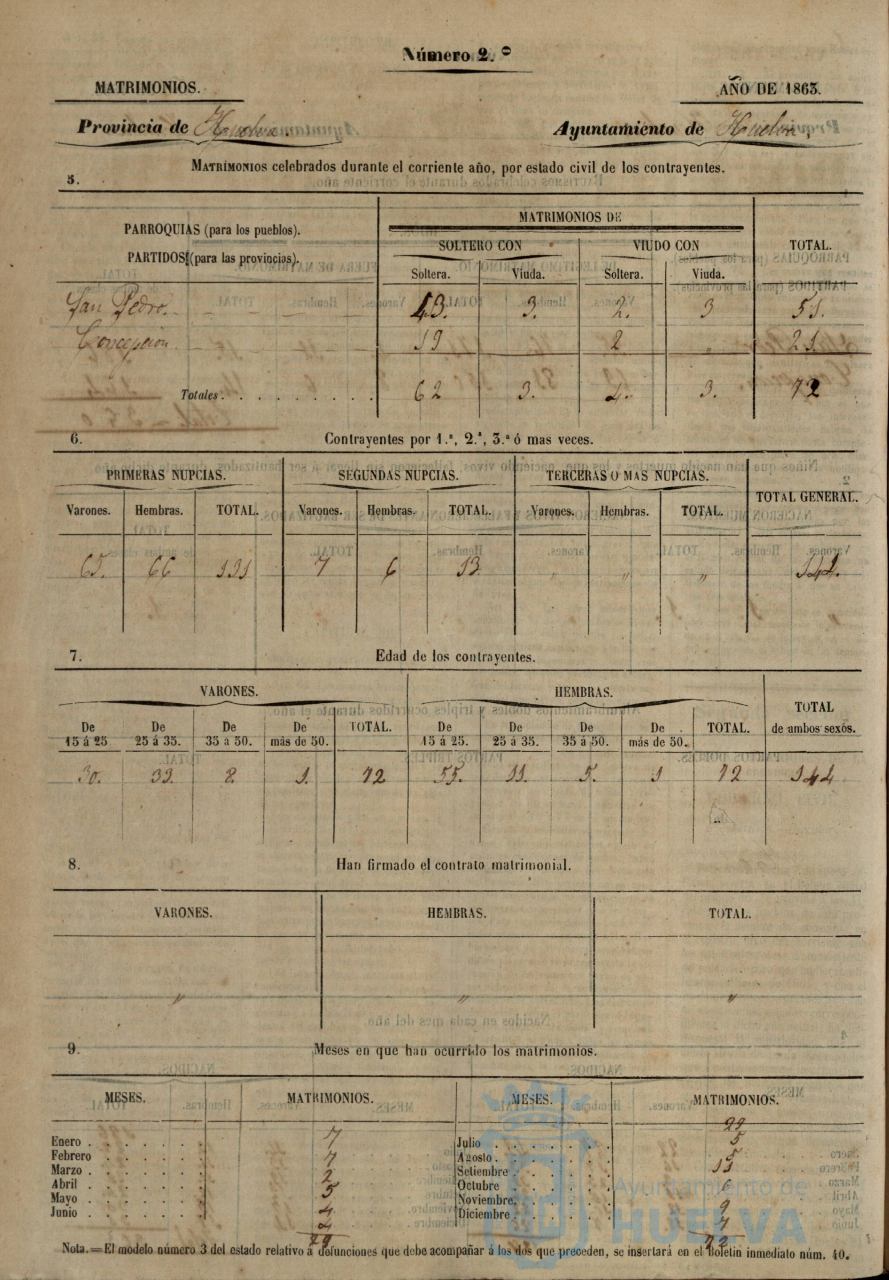 Número 2.º
MATRIMONIOS. AÑO DE 1863.
Provincia de Huelva. Ayuntamiento de Huelva,
MATRIMONIOS celebrados durante el corriente año, por estado civil de los contrayentes.
5.
PARROQUIAS (para los pueblos).
PARTIDOS (para las provincias).
MATRIMONIOS DE
SOLTERO CON VIUDO CON TOTAL.
Soltera. Viuda. Soltera. Viuda.
San Pedro. 43. 3. 2. 3 51.
Concepcion 19 2 " 21
Totales. 62 3. 4. 3. 72
6. Contrayentes por 1.ª, 2.ª, 3.ª ó mas veces.
PRIMERAS NUPCIAS. SEGUNDAS NUPCIAS. TERCERAS O MAS NUPCIAS. TOTAL GENERAL.
Varones. Hembras. TOTAL. Varones. Hembras. TOTAL. Varones. Hembras. TOTAL.
65. 66 131 7 6 13 " " " 144.
7. Edad de los contrayentes.
VARONES. HEMBRAS. TOTAL de ambos sexos.
De 15 á 25 De 25 á 35. De 35 á 50. De más de 50. TOTAL. De 15 á 25. De 25 á 35. De 35 á 50. De más de 50. TOTAL.
30. 33. 8 1. 72 55. 11. 5. 1 72 144
8. Han firmado el contrato matrimonial.
VARONES. HEMBRAS. TOTAL.
" " "
9. Meses en que han ocurrido los matrimonios.
MESES. MATRIMONIOS. MESES. MATRIMONIOS.
29
Enero 7 Julio 5
Febrero 7 Agosto 5
Marzo 2 Setiembre 11
Abril 5 Octubre 6
Mayo 4 Noviembre. 9
Junio 4 Diciembre 7
29 72
Nota.=El modelo número 3 del estado relativo á defunciones que debe acompañar á los dos que preceden, se insertará en el Boletin inmediato núm. 40.
Ayuntamiento de
HUELVA